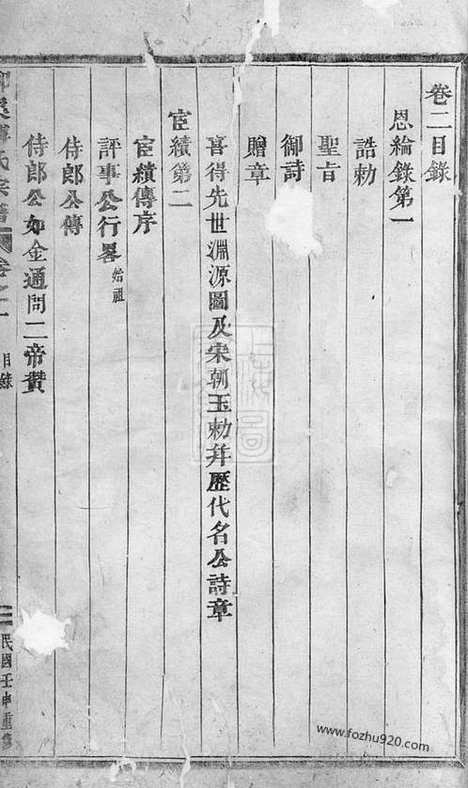 卷二目錄
恩綸錄第一
誥勅
聖旨
御詩
贈章
喜得先世淵源圖及宋朝玉勅幷歷代名公詩章
宦績第二
宦績傳序
評事公行畧 始祖
侍郎公傳
侍郎公如金通問二帝贊
氏宗譜 卷之二 目錄 二 民國壬申重修
www.fozhu920.com